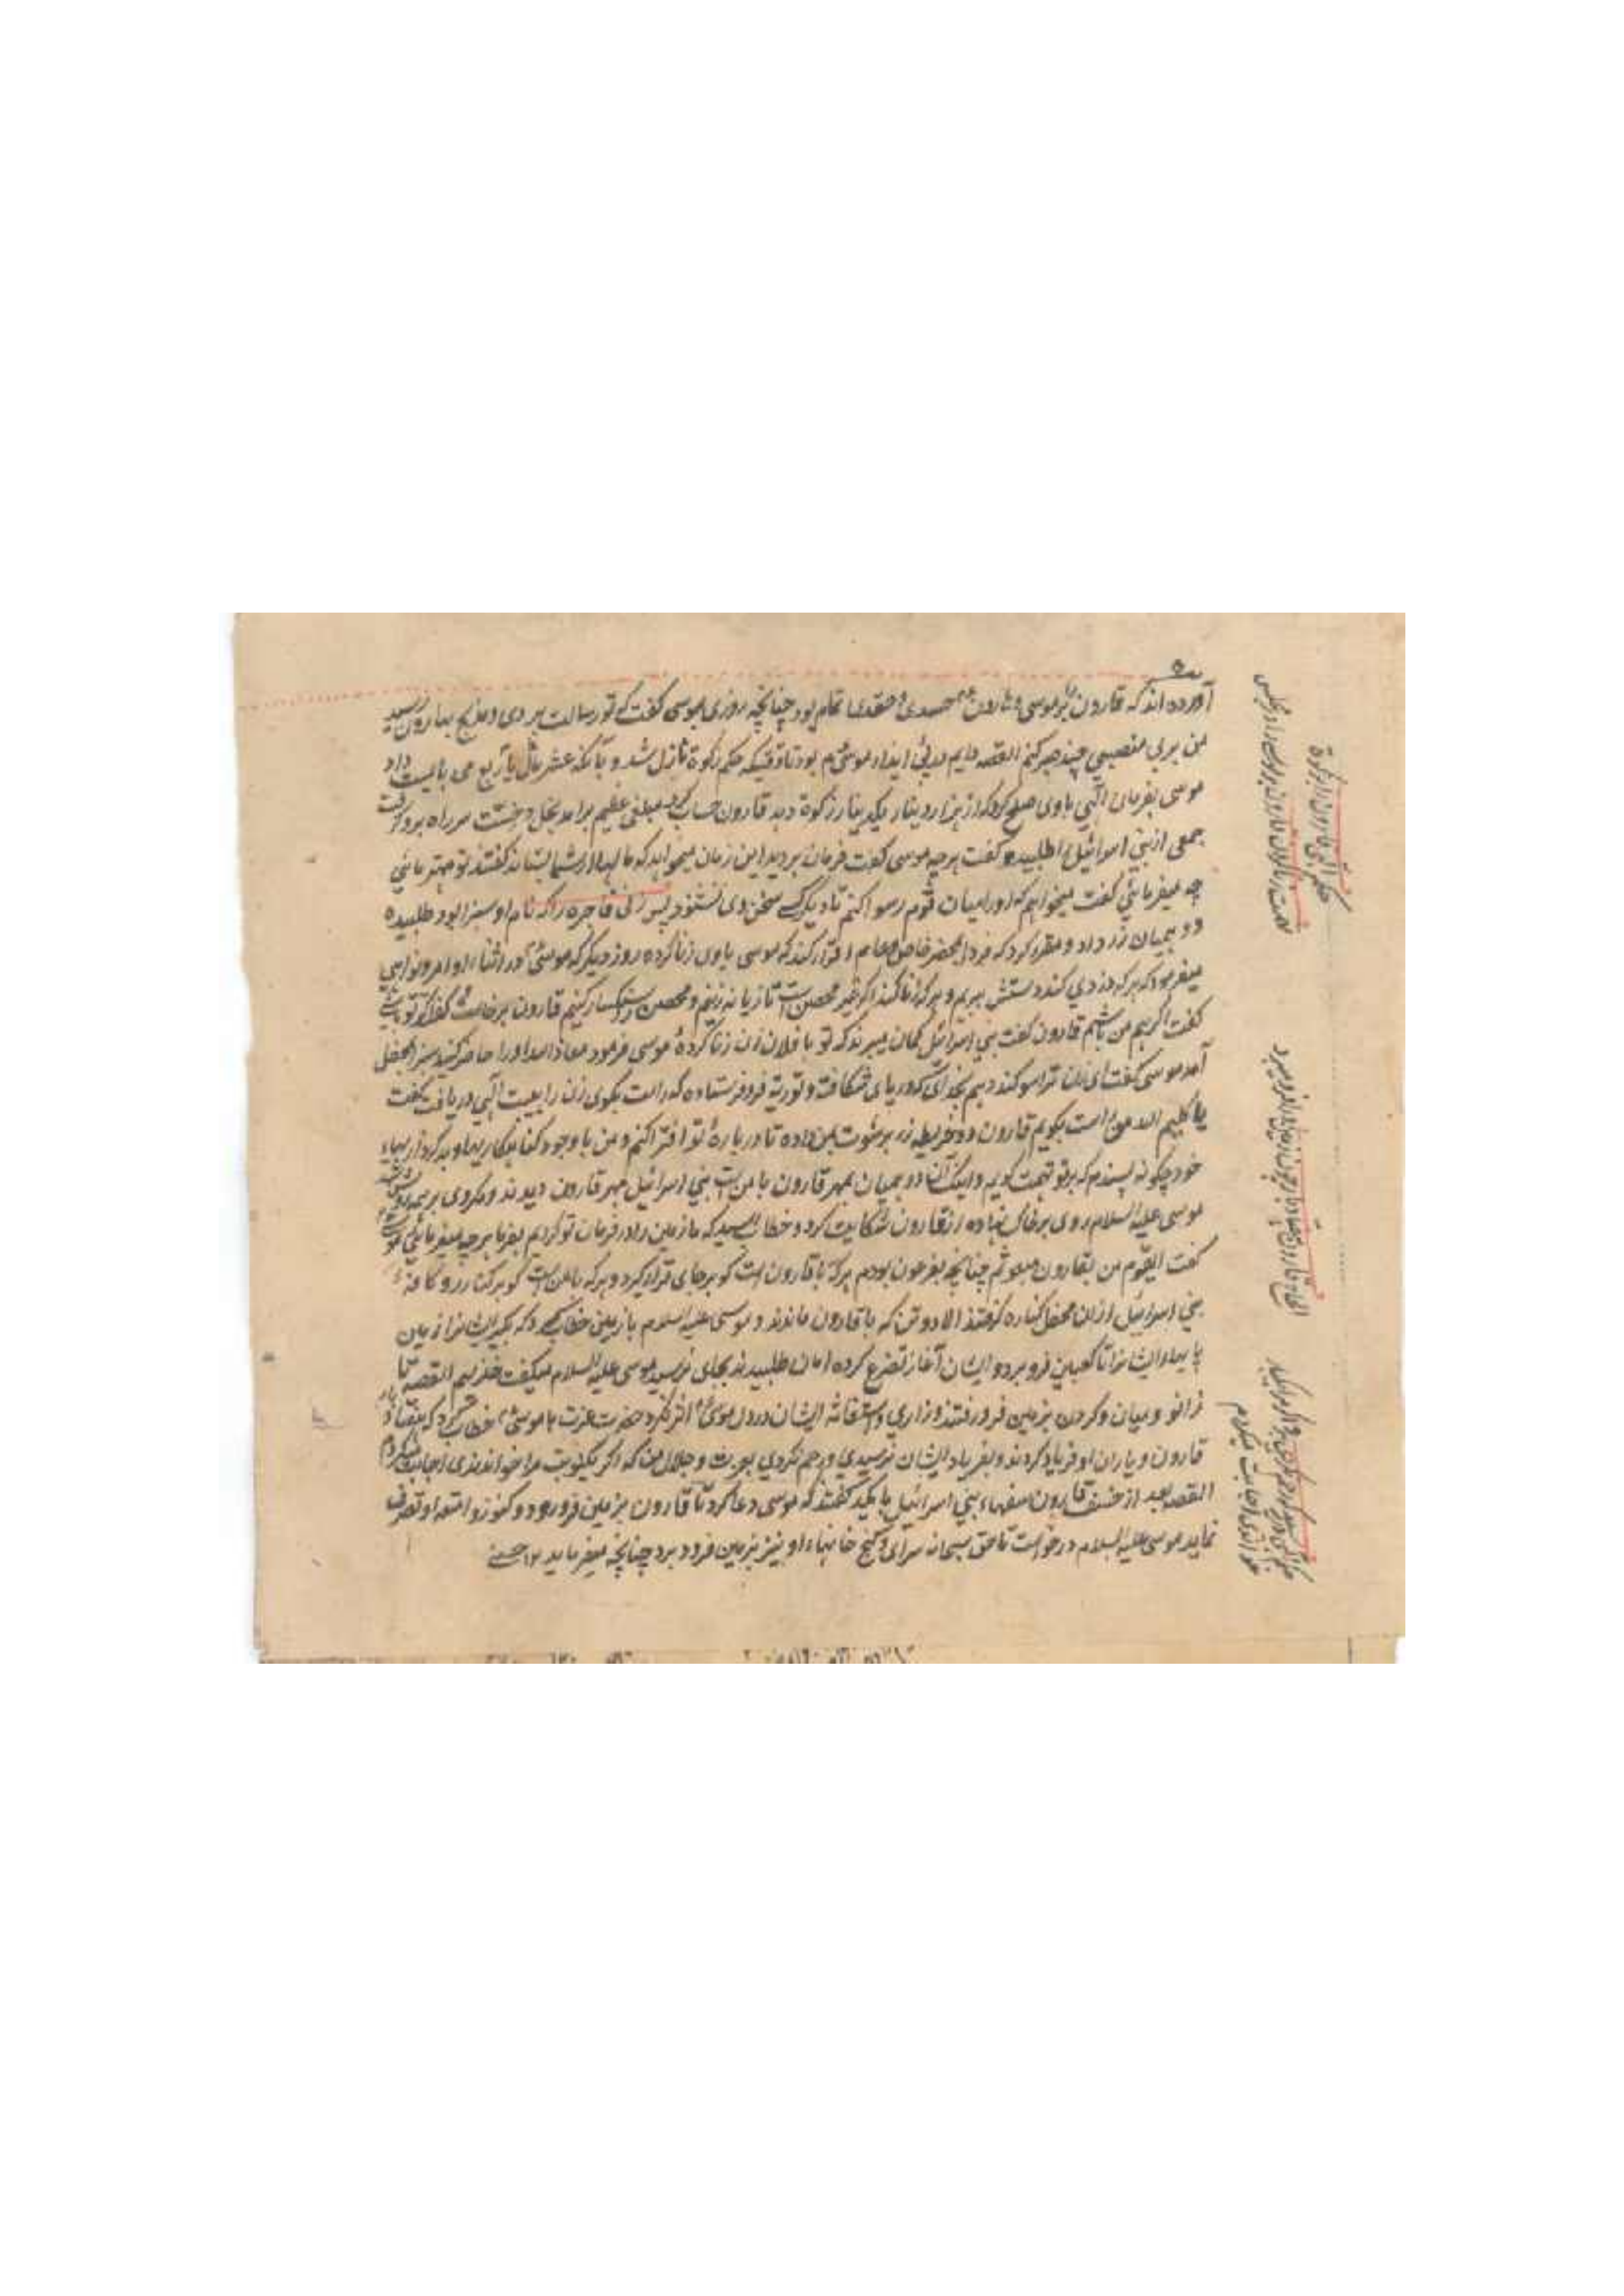 آورده اند که قارون را بر موسی و هارون حسدی و حقدی تمام بود چنانچه روزی بموسی گفت که تو رسالت بردی و مذبح بهارون رسید
من بی منصبی چند صبر کنم القصه دایم در پی ایذاء موسی م بود تا وقتیکه حکم زکوة نازل شد و بآنکه عشر مال یا ربع می بایست داد
موسی بفرمان الهی با وی صلح کرد که از هزار دینار یکدینار زکوة دهد قارون حساب کرد مبلغی عظیم برآمد بخل و خست سر راه برو گرفت
جمعی از بنی اسرائیل را طلبیده گفت هرچه موسی گفت فرمان بردید این زمان میخواهد که مالها از شما بستاند گفتند تو مهتر مائی
چه میفرمائی گفت میخواهم که او را میان قوم رسوا کنم تا دیگر کسی سخن وی نشنود پس زنی فاجره را که نام او سبزا بود طلبیده
دو همیان زر داد و مقرر کرد که فردا بمحضر خاص و عام اقرار کند که موسی با وی زنا کرده روز دیگر که موسی در اثناء اوامر و نواهی
میفرمود که هر که دزدی کند دستش ببریم و هر که زنا کند اگر غیر محصن است تازیانه زنیم و محصن را سنگسار کنیم قارون برخاست گفت اگر تو باشی
گفت اگر هم من باشم قارون گفت بنی اسرائیل گمان میبرند که تو با فلان زن زنا کردهٔ موسی فرمود معاذ الله او را حاضر کنید سبزا بمحفل
آمد موسی گفت ای زن ترا سوگند دهم بخدای که دریای شکافت و توریة فرو فرستاده که راست بگوی زن را هیبت الهی دریافت گفت
یا کلیم الله من راست بگویم قارون دو خریطه زر برشوت بمن داده تا دربارهٔ تو افترا کنم و من با وجود گناهکاریها و بدکرداریهای
خود چگونه پسندم که بر تو تهمت گویم و اینک آن دو همیان بمهر قارون با من است بنی اسرائیل مهر قارون دیدند و مکر وی بر همه روشن شد
موسی علیه السلام روی بر خاک نهاده از قارون شکایت کرد و خطاب رسید که ما زمین را در فرمان تو کردیم بفرما هرچه میفرمائی موسی
گفت ای قوم من بقارون مبعوثم چنانچه بفرعون بودم هر که با قارون است گو بر جای قرار گیرد و هر که با من است گو بر کنار رو کافهٔ
بنی اسرائیل ازان محفل کناره گرفتند الا دو تن که با قارون ماندند و موسی علیه السلام با زمین خطاب کرد که بگیر ایشانرا زمین
پایهاء ایشانرا تا کعبین فرو برد و ایشان آغاز تضرع کرده امان طلبیدند بجای نرسید موسی علیه السلام میگفت خذیهم القصه تا
زانو و میان و گردن بزمین فرو رفتند و زاری و استغاثه ایشان در دل موسی اثر نکرد حضرت عزت با موسی خطاب کرد که هفتاد بار
قارون و یاران او فریاد کردند و بفریاد ایشان نرسیدی و رحم نکردی بعزت و جلال من که اگر یکنوبت مرا خواندندی اجابت میکردم
القصه بعد از خسف قارون سفهاء بنی اسرائیل با یکدیگر گفتند که موسی دعا کرد تا قارون بزمین فرو رود و کنوز و امتعه او تصرف
نماید موسی علیه السلام درخواست تا حق سبحانه سرای و گنج خانهاء او نیز بزمین فرو برد چنانچه میفرماید ۱۲ حسینی